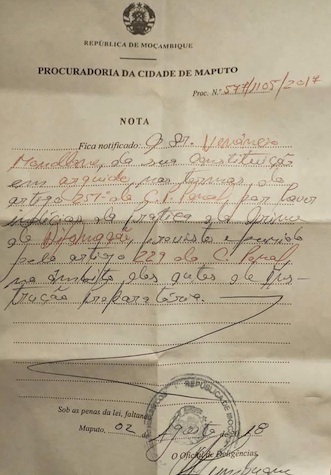 REPÚBLICA DE MOÇAMBIQUE
PROCURADORIA DA CIDADE DE MAPUTO
Proc. N.º 597/1105/2017
NOTA
Fica notificado: O Sr. Venâncio
Mondlane, da sua Constituição
em arguido, nos termos do
artigo 251º do C.P. Penal, por haver
notícias da prática do crime
de Difamação, previsto e punido
pelo artigo 229 do C. Penal,
no âmbito dos autos de Ins-
trução Preparatória.
Sob as penas da lei, faltando
Maputo, 02 de Agosto de 18
O Oficial de Diligências,